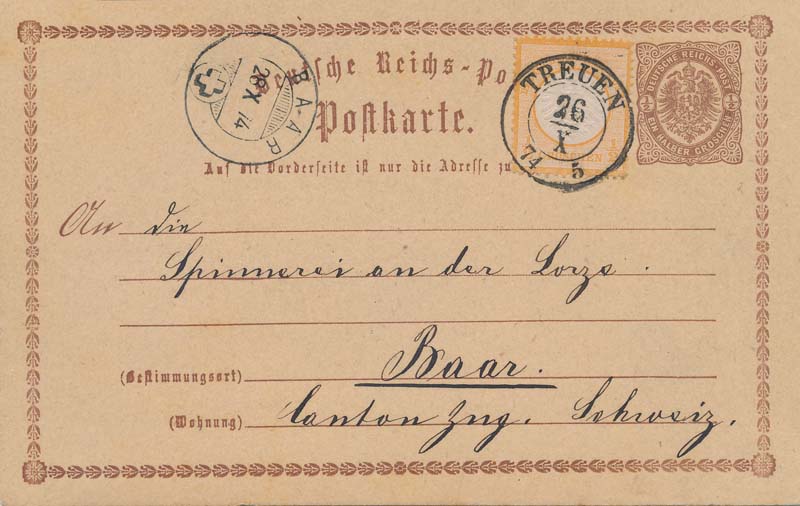 Deutsche Reichs-Po
Postkarte.
Auf die Vorderseite ist nur die Adresse zu
BAAR
28 X 74
TREUEN
26
X
74 5
DEUTSCHE REICHS-POST
½ ½
EIN HALBER GROSCHEN
An die
Spinnerei an der Lorze.
(Bestimmungsort) Baar.
(Wohnung) Canton Zug. Schweiz.